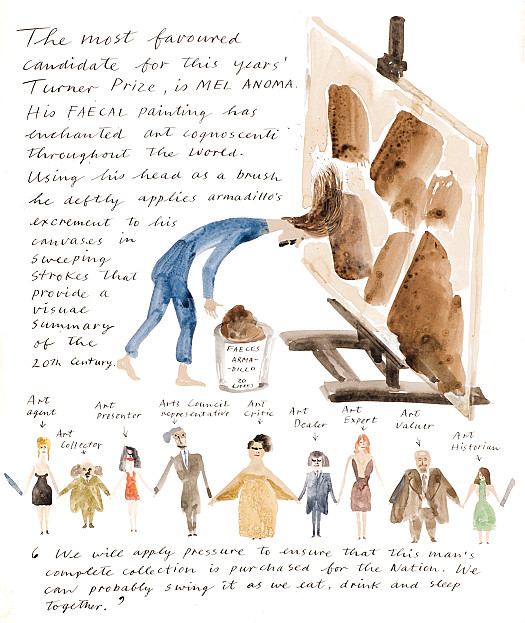 The most favoured
candidate for this years'
Turner Prize, is MEL ANOMA.
His FAECAL painting has
enchanted art cognoscenti
throughout the world.
Using his head as a brush
he deftly applies armadillo's
excrement to his
canvases in
sweeping
strokes that
provide a
visual
summary
of the
20th Century.
FAECES
ARMA-
-DILLO
20
LITRES
Art
agent
Art
Collector
Art
presenter
Arts Council
representative
Art
Critic
Art
Dealer
Art
Expert
Art
Valuer
Art
Historian
‘ We will apply pressure to ensure that this man's
complete collection is purchased for the Nation. We
can probably swing it as we eat, drink and sleep
together. ’